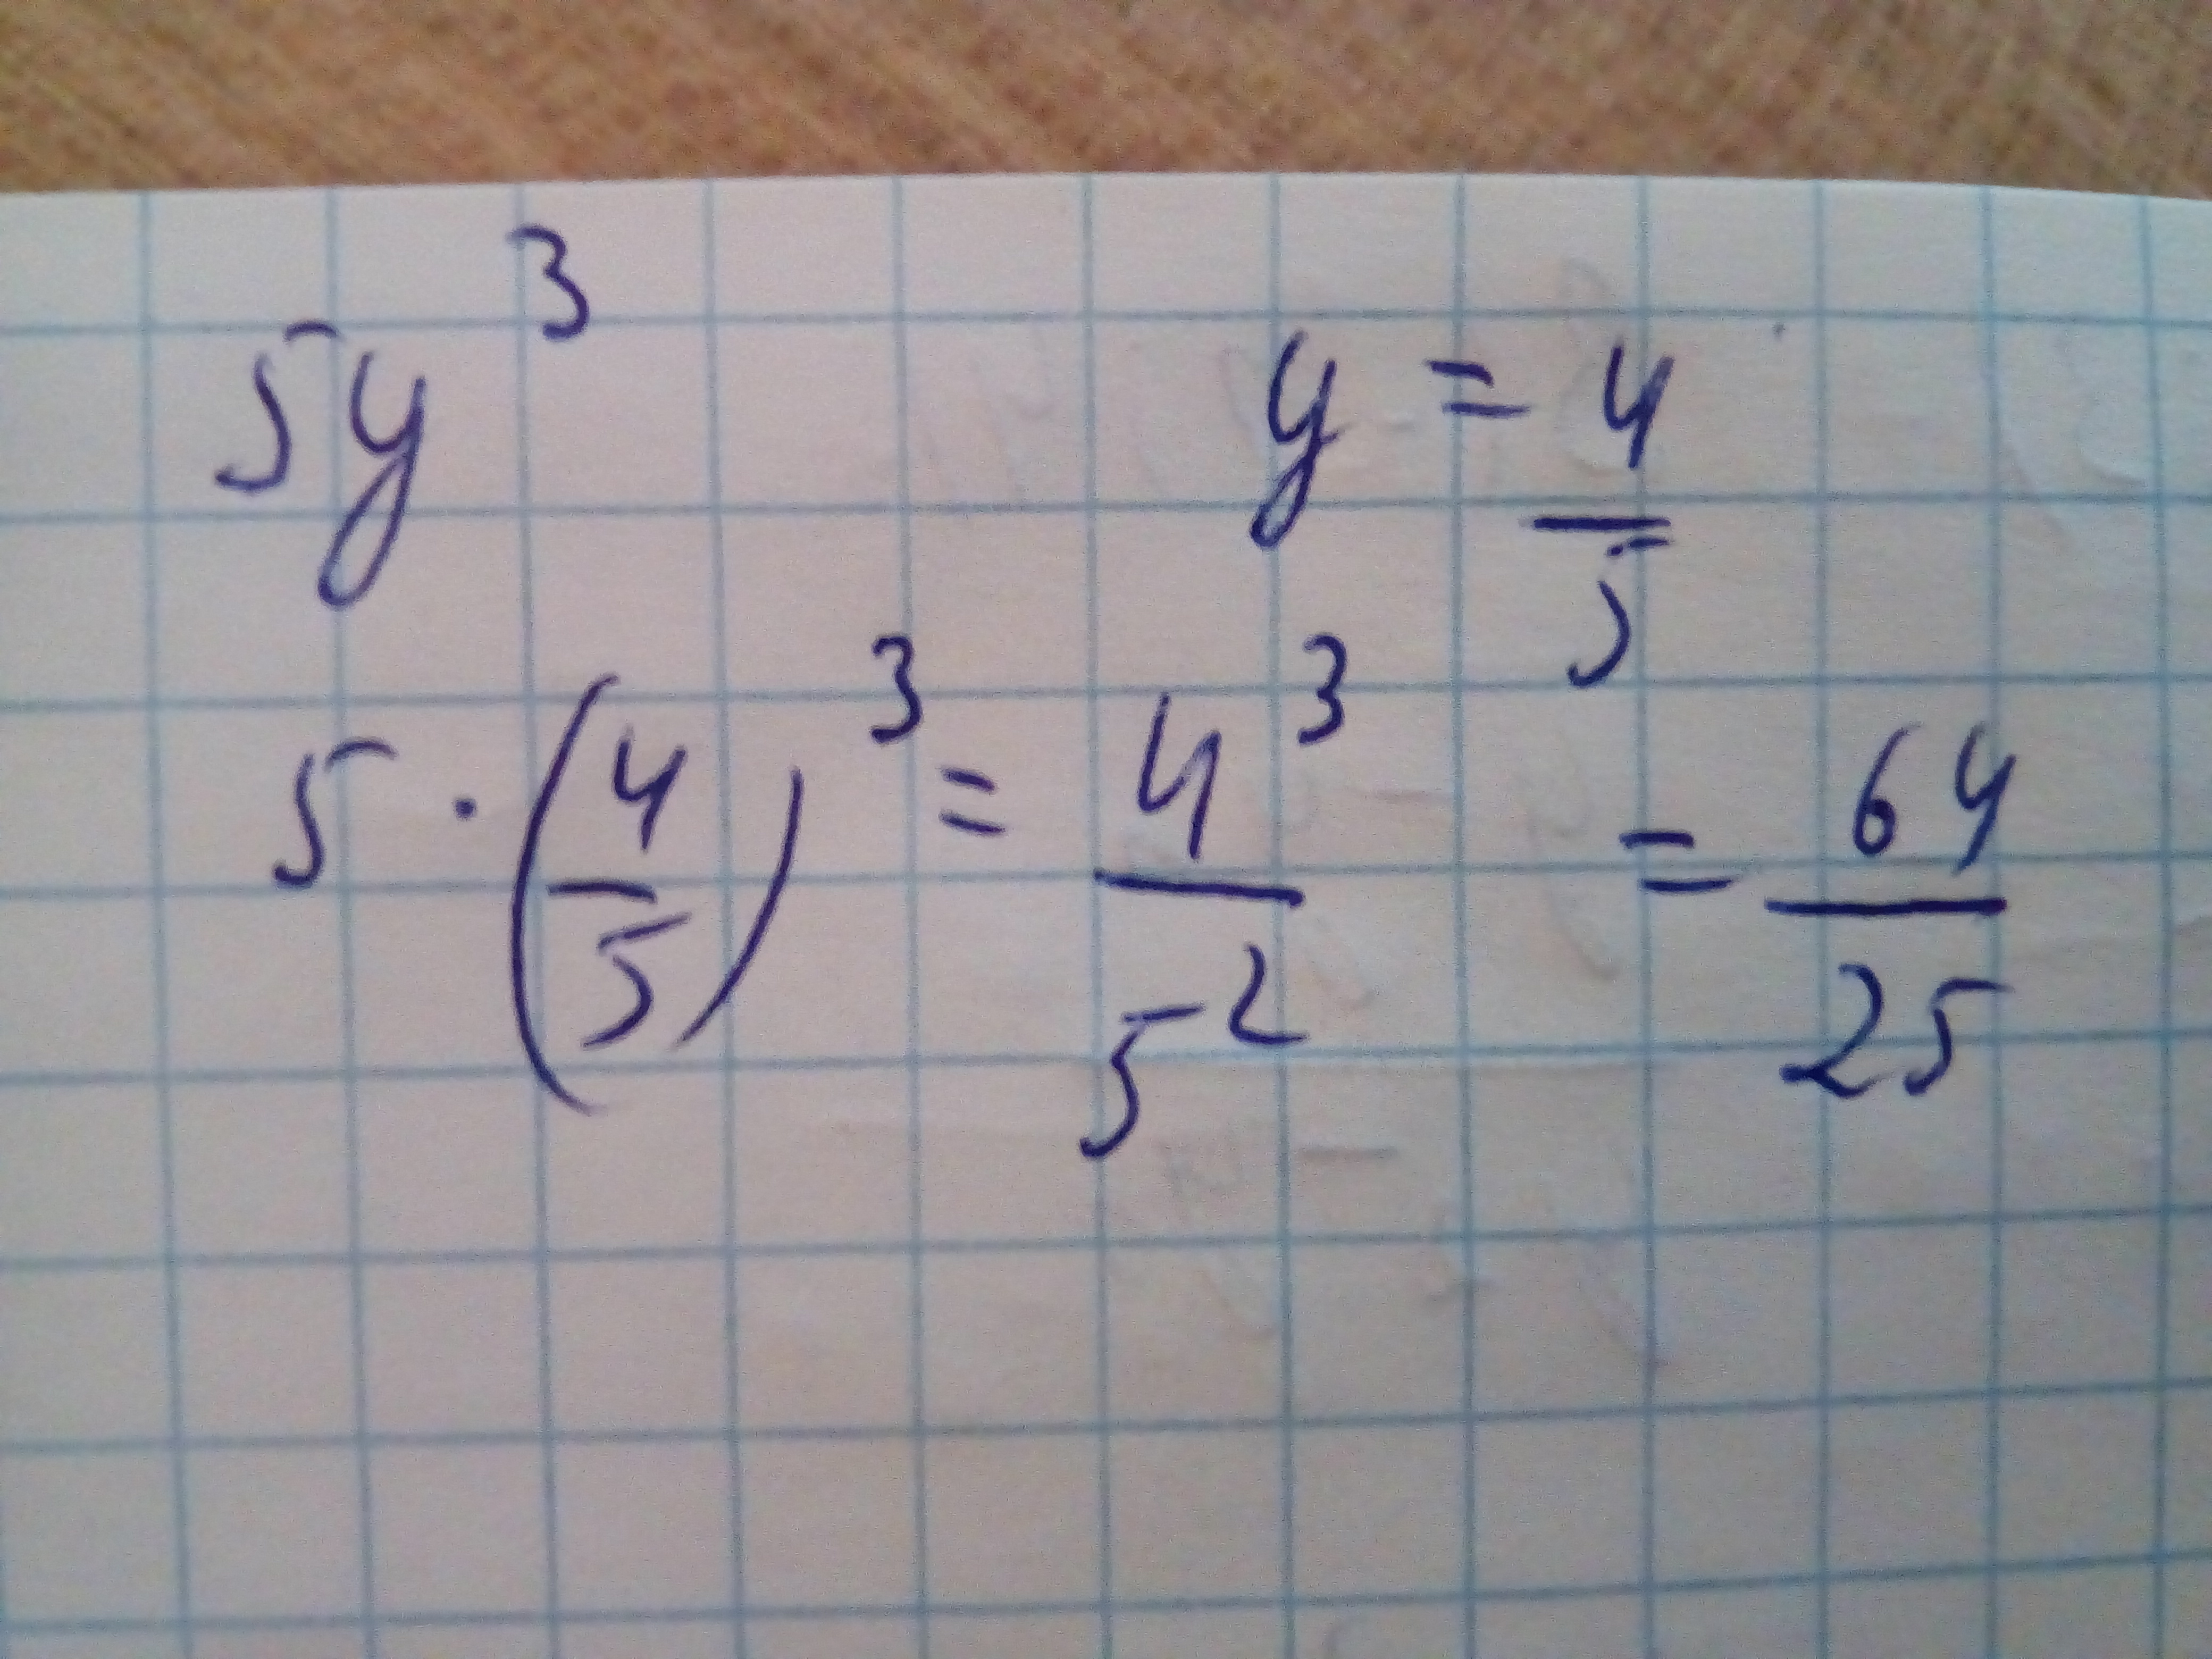 5y³ y = 4/5
5 · (4/5)³ = 4³/5² = 64/25